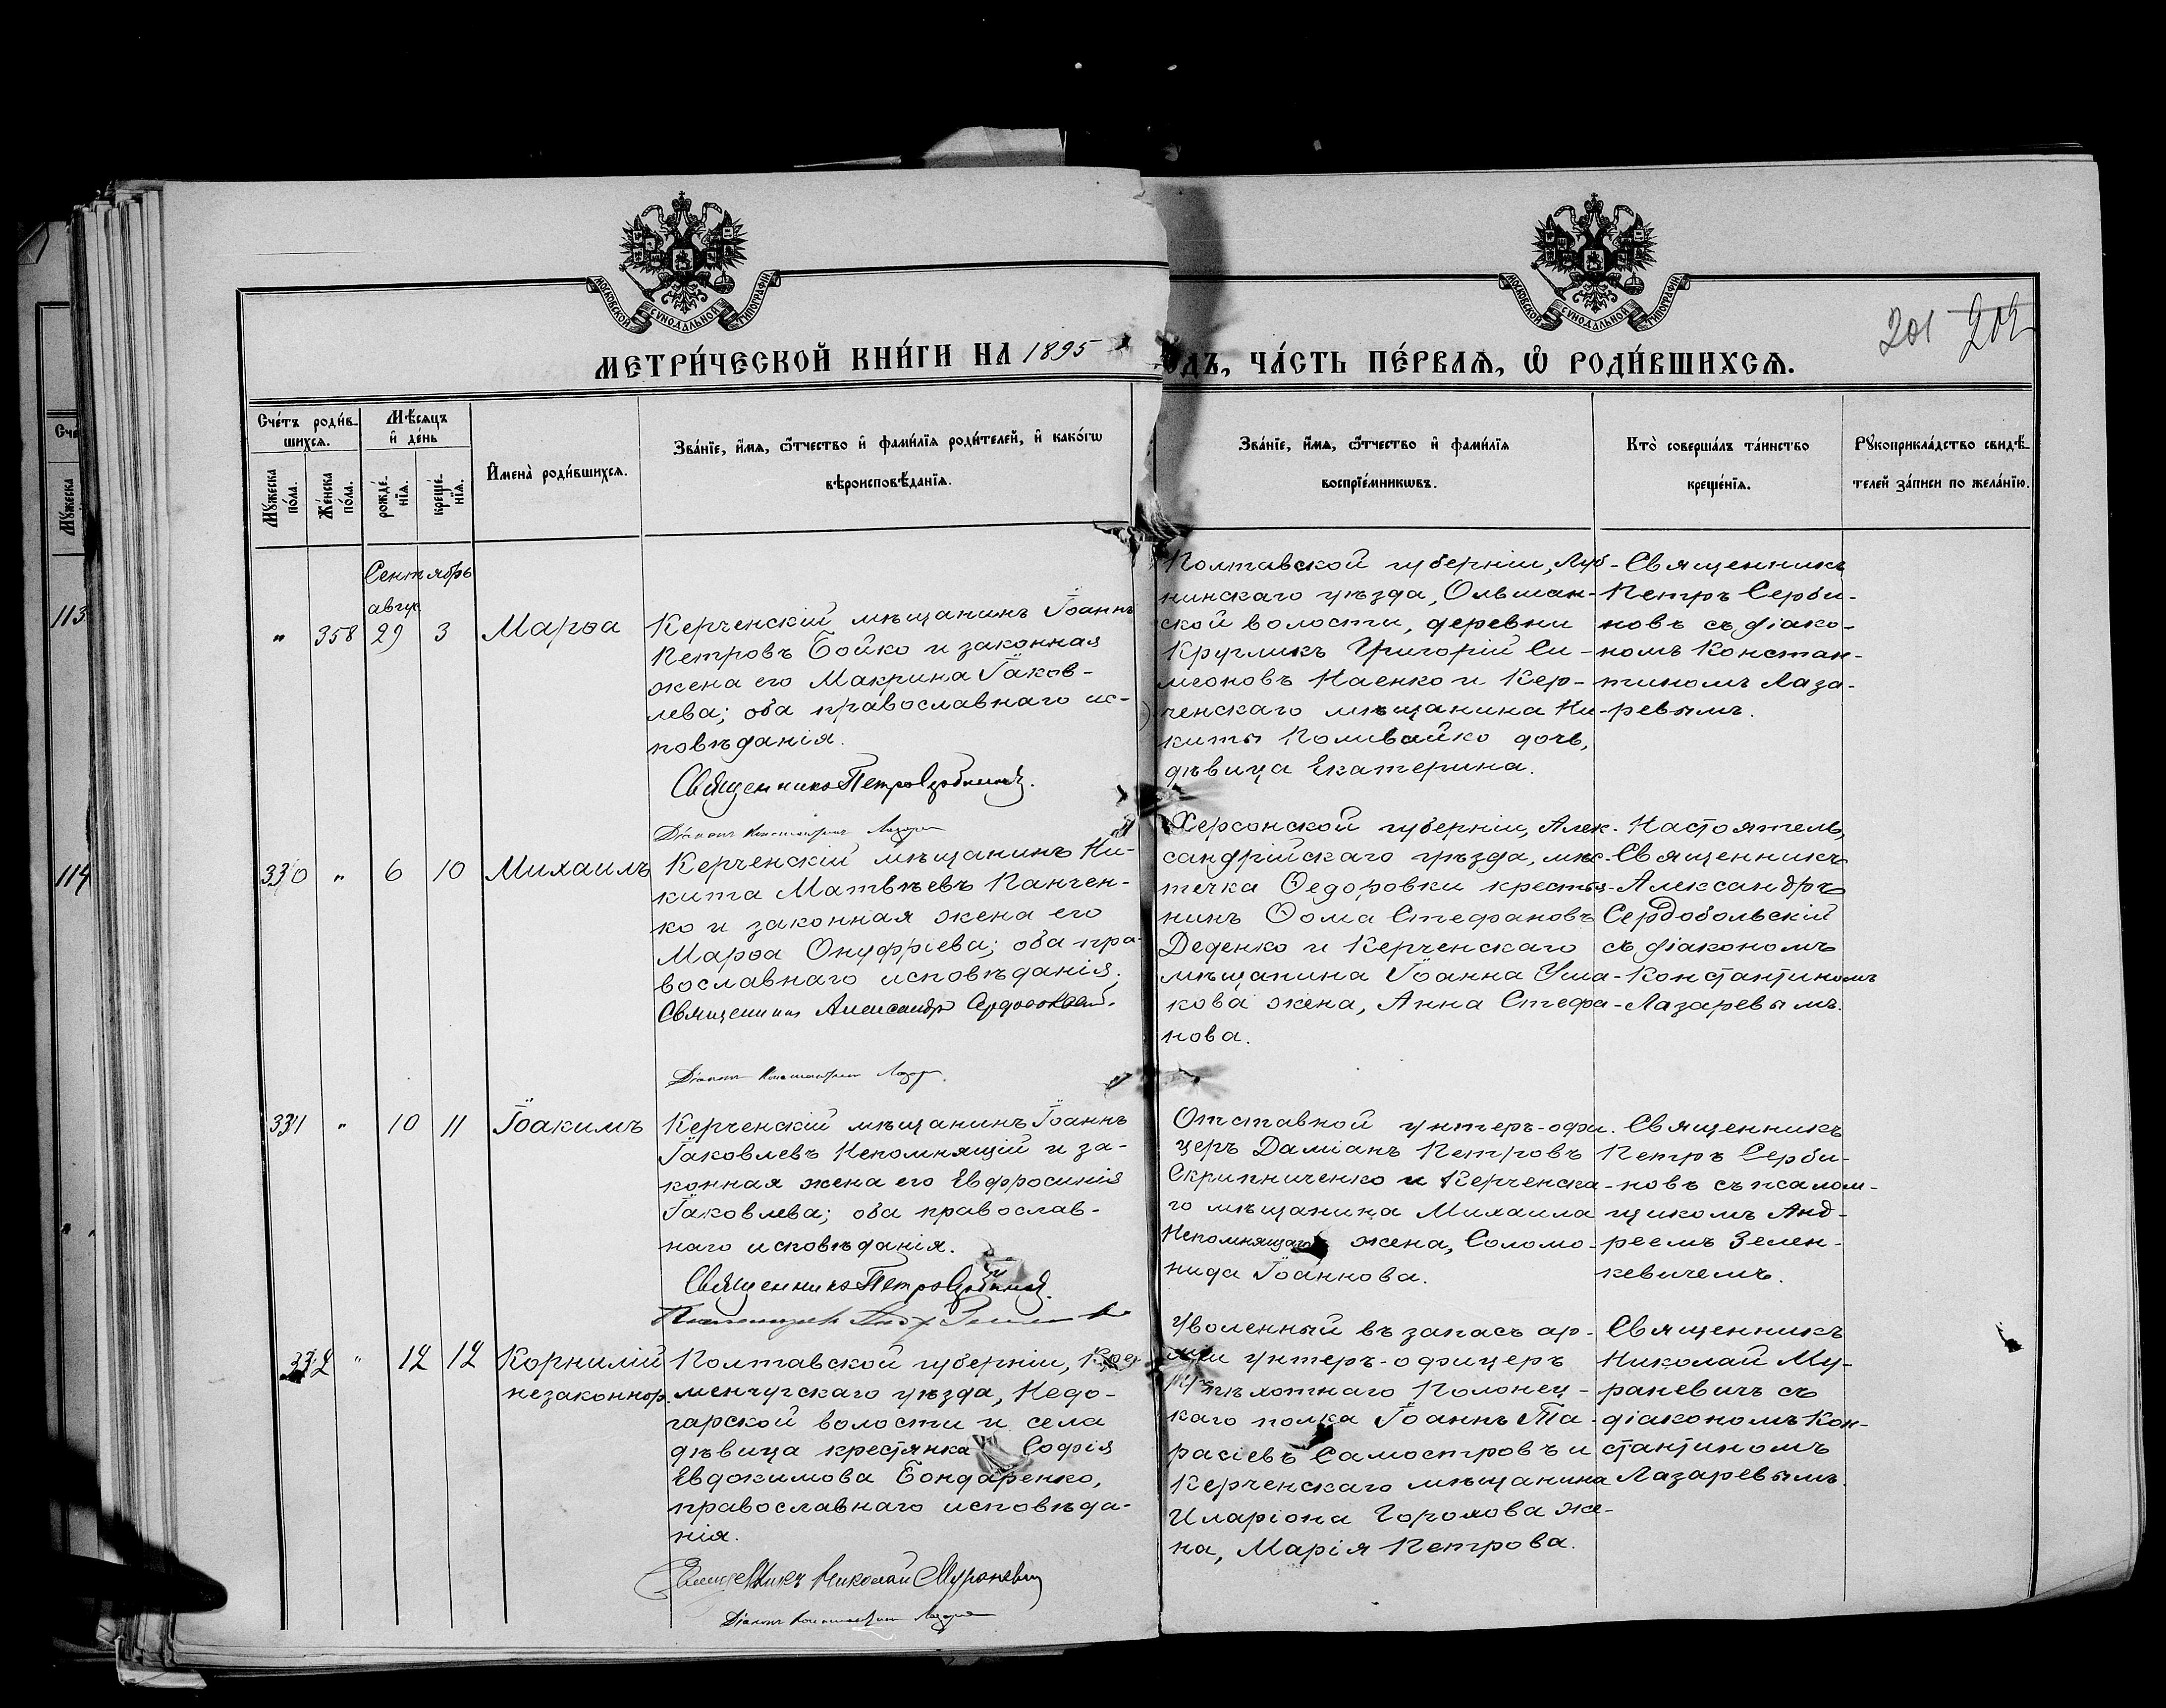 МОСКОВСКОЙ СУНОДАЛЬНОЙ ТИПОГРАФІИ
МОСКОВСКОЙ СУНОДАЛЬНОЙ ТИПОГРАФІИ
201 202
МЕТРИ́ЧЕСКОЙ КНИ́ГИ НА 1895
ОДЪ, ЧА́СТЬ ПЕ́РВАѦ, Ѡ҆ РОДИ́ВШИХСѦ.
Сче́тъ роди́в-
шихсѧ.
Мѣ́сѧцъ
и҆ де́нь
Мꙋ́жеска
по́ла.
Же́нска
по́ла.
рожде́-
нїѧ.
креще́-
нїѧ.
И҆мена̀ роди́вшихсѧ.
Зва́нїе, и҆́мѧ, ѻ҆́тчество и҆ фами́лїѧ роди́телей, и҆ како́гѡ
вѣроисповѣ́данїѧ.
Зва́нїе, и҆́мѧ, ѻ҆́тчество и҆ фами́лїѧ
воспрїе́мникѡвъ.
Кто̀ соверша́лъ та́инство
креще́нїѧ.
Рꙋкоприкла́дство свидѣ́-
телей за́писи по жела́нїю.
Сче
Мꙋжеска
113
114
Сентябрь
авгус
" 358 29 3 Марѳа
Керченскій мѣщанинъ Іоаннъ
Петровъ Бойко и законная
жена его Макрина Іаков-
лева; оба православнаго ис-
повѣданія.
Священникъ Петръ Сербиновъ.
Діаконъ Константинъ Лазарев
Полтавской губерніи, Луб-
нинскаго уѣзда, Ольшан-
ской волости, деревни
Кругликъ Григорій Си-
меоновъ Наенко и Кер-
ченскаго мѣщанина Ни-
киты Поливайко дочь,
дѣвица Екатерина.
Священникъ
Петръ Серби-
новъ съ діако-
номъ Констан-
тиномъ Лаза-
ревымъ.
330 " 6 10 Михаилъ
Керченскій мѣщанинъ Ни-
кита Матвѣевъ Панчен-
ко и законная жена его
Марѳа Онуфріева; оба пра-
вославнаго исповѣданія.
Священникъ Александръ Сердобольскій.
Діаконъ Константинъ Лазарев
Херсонской губерніи, Алек-
сандрійскаго уѣзда, мѣс-
течка Ѳедоровки крестья-
нинъ Ѳома Стефановъ
Деденко и Керченскаго
мѣщанина Іоанна Уша-
кова жена, Анна Стефа-
нова.
Настоятель,
Священникъ
Александръ
Сердобольскій
съ діакономъ
Константиномъ
Лазаревымъ.
331 " 10 11 Іоакимъ
Керченскій мѣщанинъ Іоаннъ
Іаковлевъ Непомнящій и за-
конная жена его Евфросинія
Іаковлева; оба православ-
наго исповѣданія.
Священникъ Петръ Сербиновъ.
Отставной унтеръ-офи-
церъ Даміанъ Петровъ
Скрипниченко и Керченска-
го мѣщанина Михаила
Непомнящаго жена, Соломо-
нида Іоаннова.
Священникъ
Петръ Серби-
новъ съ псалом-
щикомъ Анд-
реемъ Зелен-
кевичемъ.
332 " 12 12 Корнилій
незаконнор.
Полтавской губерніи, Кре-
менчугскаго уѣзда, Недо-
гарской волости и села
дѣвица крестянка Софія
Евдокимова Бондаренко,
православнаго исповѣда-
нія.
Священникъ Николай Мураневич
Діаконъ Константинъ Лазарев
Уволенный въ запасъ ар-
міи унтеръ-офицеръ
пѣхотнаго Полонец-
каго полка Іоаннъ Та-
расіевъ Самостровъ и
Керченскаго мѣщанина
Иларіона Горохова же-
на, Марія Петрова.
Священникъ
Николай Му-
раневичъ съ
діакономъ Кон-
стантиномъ
Лазаревымъ.